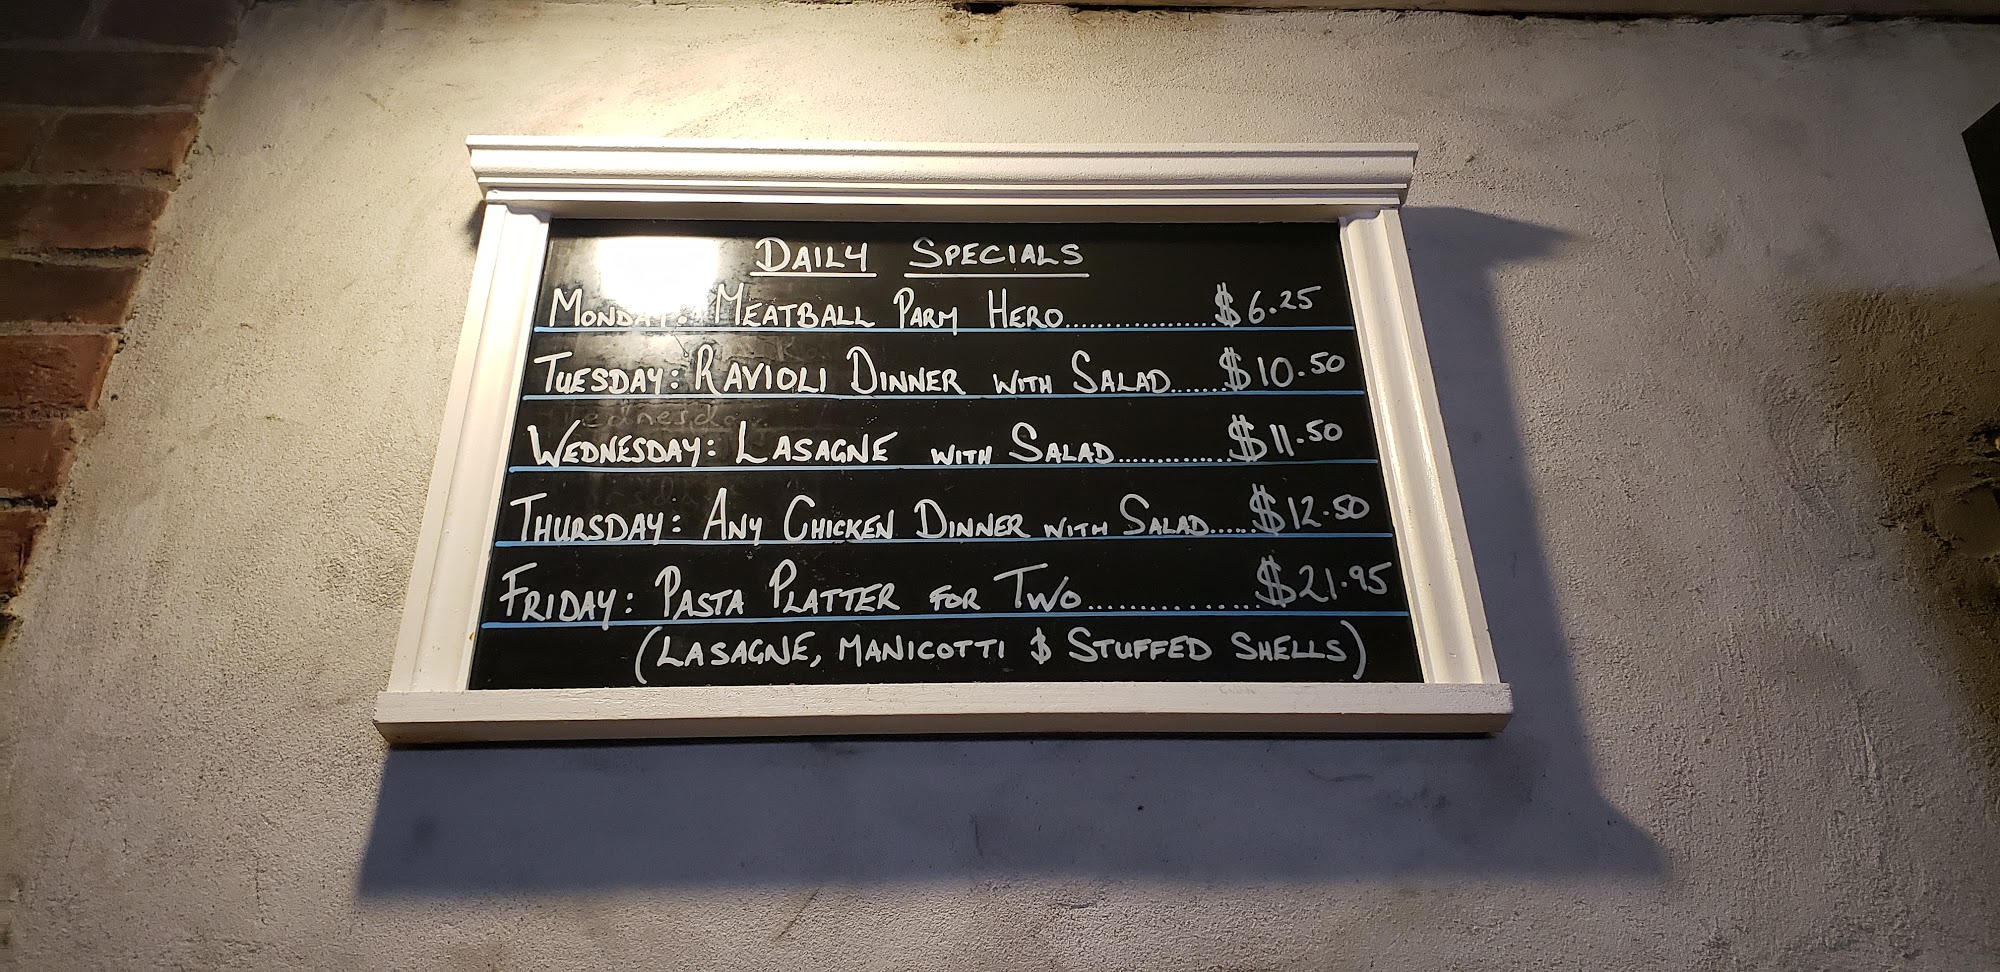 DAILY SPECIALS
MONDAY: MEATBALL PARM HERO..................$6.25
TUESDAY: RAVIOLI DINNER WITH SALAD......$10.50
Wednesday
WEDNESDAY: LASAGNE WITH SALAD.............$11.50
THURSDAY: ANY CHICKEN DINNER WITH SALAD......$12.50
FRIDAY: PASTA PLATTER FOR TWO................$21.95
(LASAGNE, MANICOTTI $ STUFFED SHELLS)